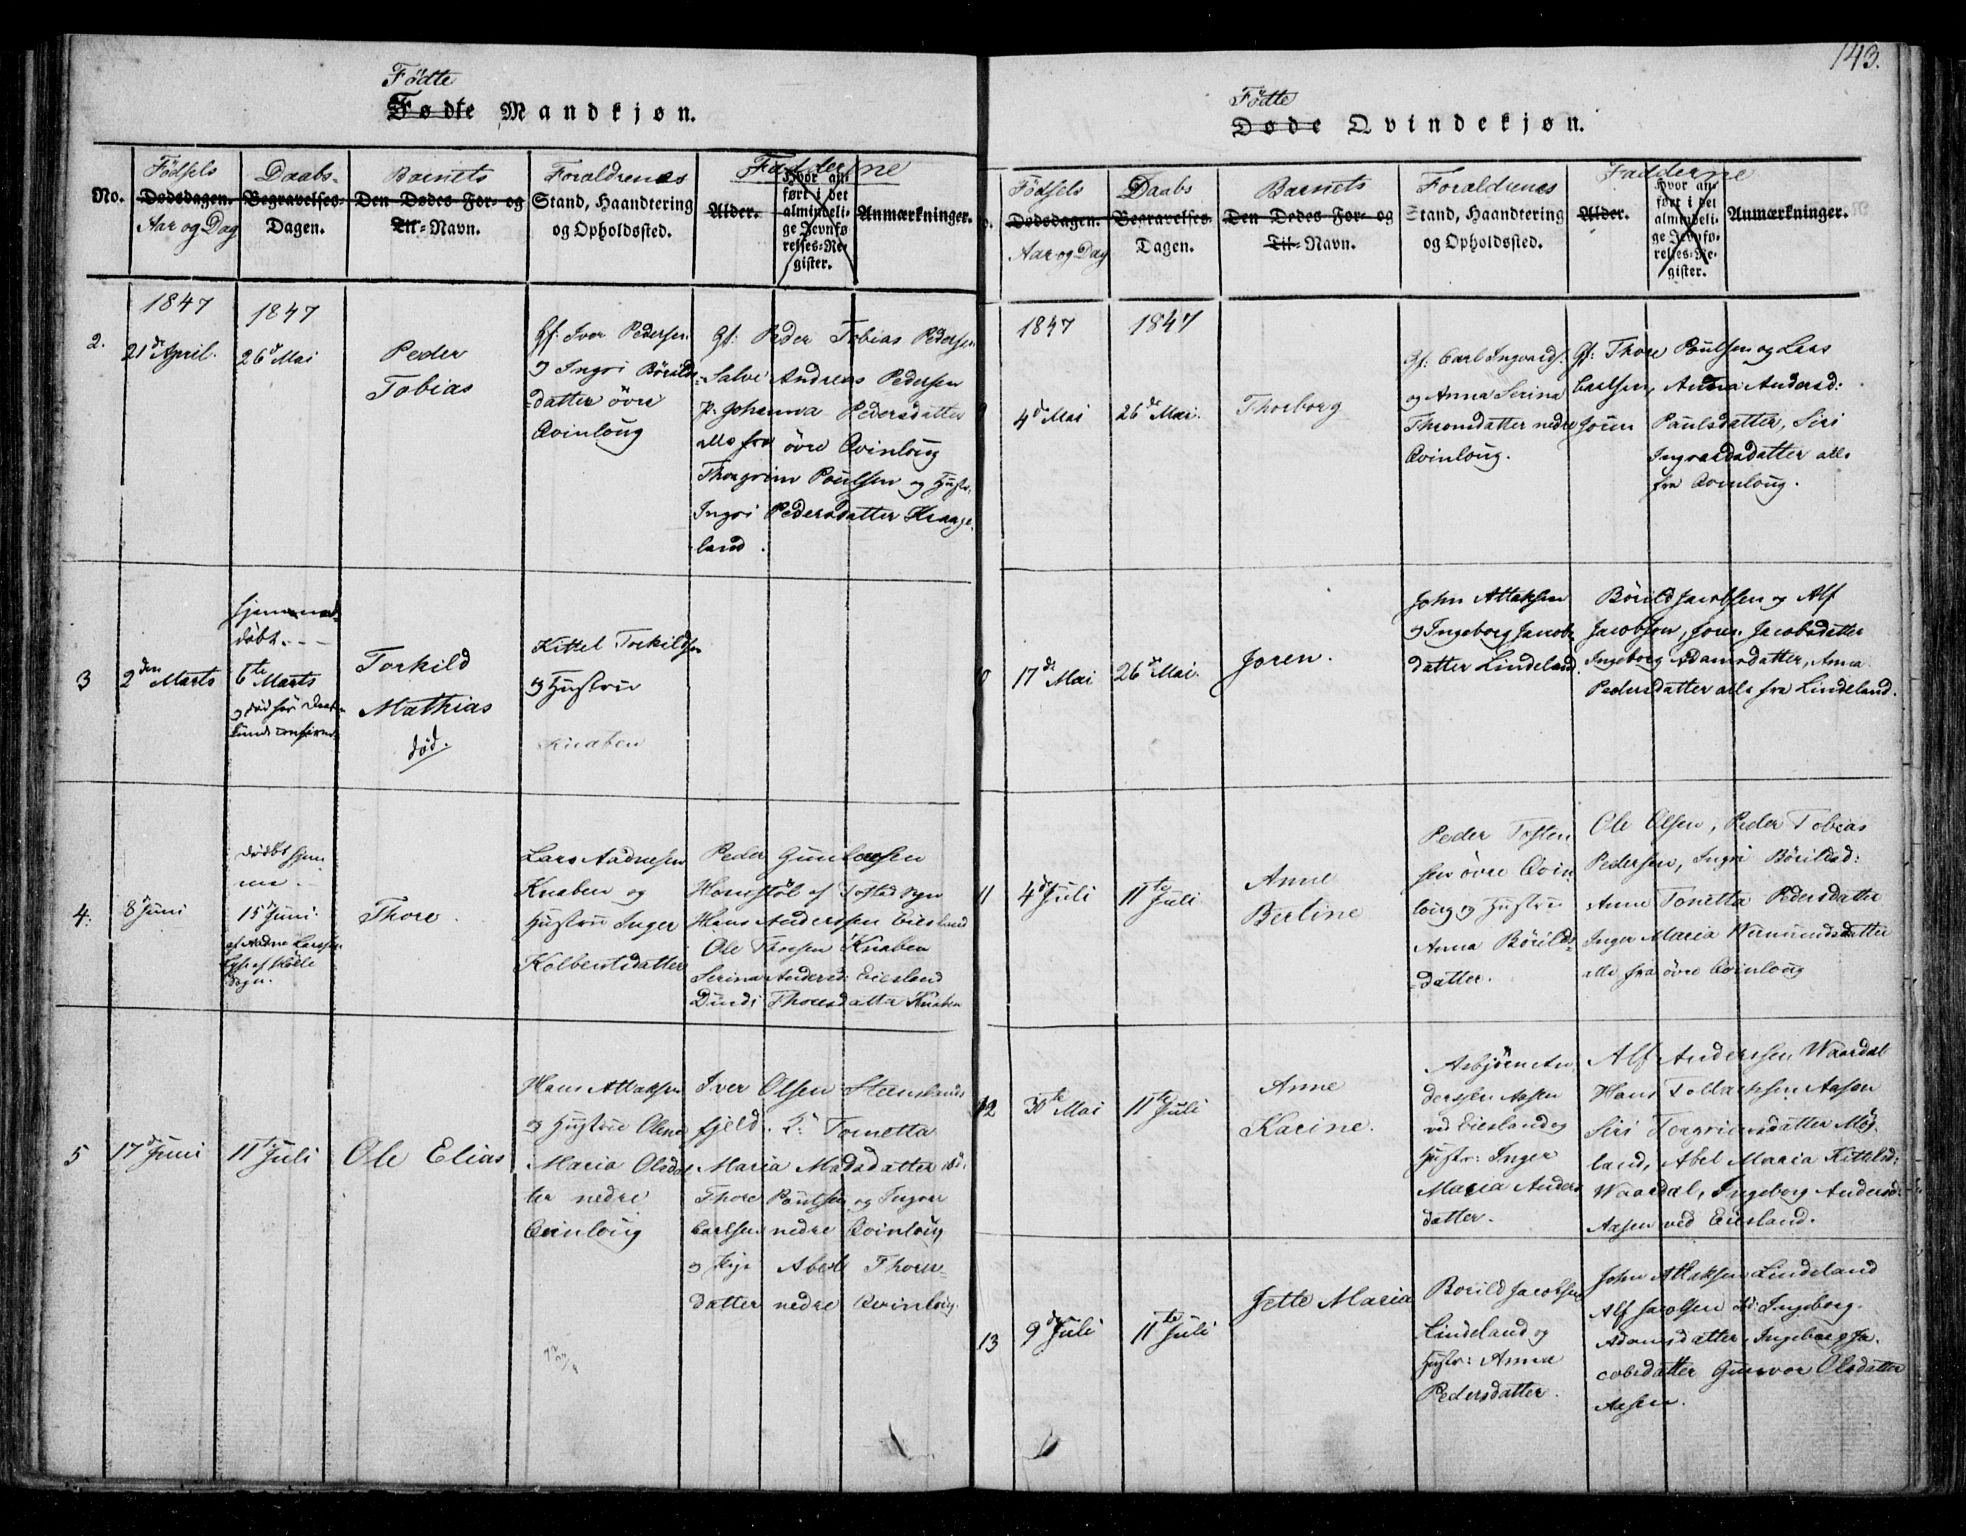 143.
Fødte
Fødte Mandkjøn.
No.
Fødsels
Dødsdagen.
Aar og Dag
Daabs-
Begravelses-
Dagen.
Barnets
Den Dødes For- og
Til-Navn.
Forældrenes
Stand, Haandtering
og Opholdssted.
Fadderne
Alder.
Hvor an-
ført i det
almindeli-
ge Jevnfø-
relses-Re-
gister.
Anmærkninger.
2.
1847
21de April.
1847
26de Mai
Peder
Tobias
Gf: Iver Pedersen
og Ingri Børilds-
datter övre
Qvinloug
Gf: Peder Tobias Pedersen
Salve Andreas Pedersen
P. Johanna Pedersdatter
alle fra övre Qvinloug
Thorgrim Poulsen og Hustr.
Ingri Pedersdatter Kraage-
land.
3
2den Marts
Hjemme
døbt.
6te Marts
Torkild
Mathias
død.
Kittel Torkildsen
og Hustrue
Knaben
4.
8 Juni
Døbt hjem
me.
15 Juni.
af Aadne Larsen
Sogn.
Thore.
Lars Aadnesen
Knaben og
Hustrue Inger
Kolbentsdatter
Peder Gunlaugsen
Homstöl af Tofted Sogn
Hans Anderssen Eiesland
Ole Thoresen Knaben
Serina Andersd: Eiesland
Dinndi Thoresdatter Knaben
5
17de Juni
11te Juli
Ole Elias
Hans Atlaksen
og Hustrue Olene
Maria Olsdat
ter nedre
Qvinloug
Iver Olsen Steenslands
fjeld. Tonetta
Maria Madsdatter ibd.
Thore Poulsen og Ingvar
Carlsen nedre Qvinloug
og Pige Abel Thores-
datter nedre Qvinloug.
Fødte
Døde Qvindekjøn.
Fødsels
Dødsdagen.
Aar og Dag
Daabs
Begravelses-
Dagen.
Barnets
Den Dødes For- og
Til-Navn.
Forældrenes
Stand, Haandtering
og Opholdssted.
Fadderne
Alder.
Hvor an-
ført i det
almindeli-
ge Jevnfø-
relses-Re-
gister.
Anmærkninger.
1847
4de Mai
1847
26de Mai.
Thorborg
Gf: Carl Ingvards.
og Anna Serina
Thromdatter nedre
Qvinloug.
Gf: Thore Poulsen og Lars
Carlsen, Andrea Andersd:
Joren Paulsdatter, Siri
Ingvardsdatter alle
fra Qvinloug.
17de Mai
26de Mai.
Joren.
John Atlaksen
og Ingeborg Jacobs
datter Lindeland.
Börild Jacobsen og Alf
Jacobsen, Joren Jacobsdatter
Ingeborg Adamsdatter, Anna
Pedersdatter alle fra Lindeland.
11
4de Juli
11te Juli
Anne
Bertine
Peder Tosten
sen övre Qvin
loug og Hustrue
Anna Börilds-
datter.
Ole Olsen, Peder Tobias
Pedersen, Ingri Börildsd:
Anne Tonetta Pedersdatter
Inger Maria Vermundsdatter
alle fra övre Qvinloug
12
30te Mai
11te Juli
Anne
Karine.
Asbjörn An
dersen Aasen
ved Eiesland og
Hustr: Inger
Maria Anders
datter.
Alf Anderssen Waardal
Hans Tollacksen Aasen
Siri Torgrimsdatter Møg-
land, Abel Maria Kittelsd:
Waardal, Ingeborg Andersd:
Aasen ved Eiesland.
13
9de Juli
11te Juli
Jette Maria
Borild Jacobsen
Lindeland og
Hustr: Anna
Pedersdatter.
John Atlaksen Lindeland
Alf Jacobsen ibd: Ingeborg
Adamsdatter, Ingeborg Ja-
cobsdatter Gunvor Olsdatter
Aasen.